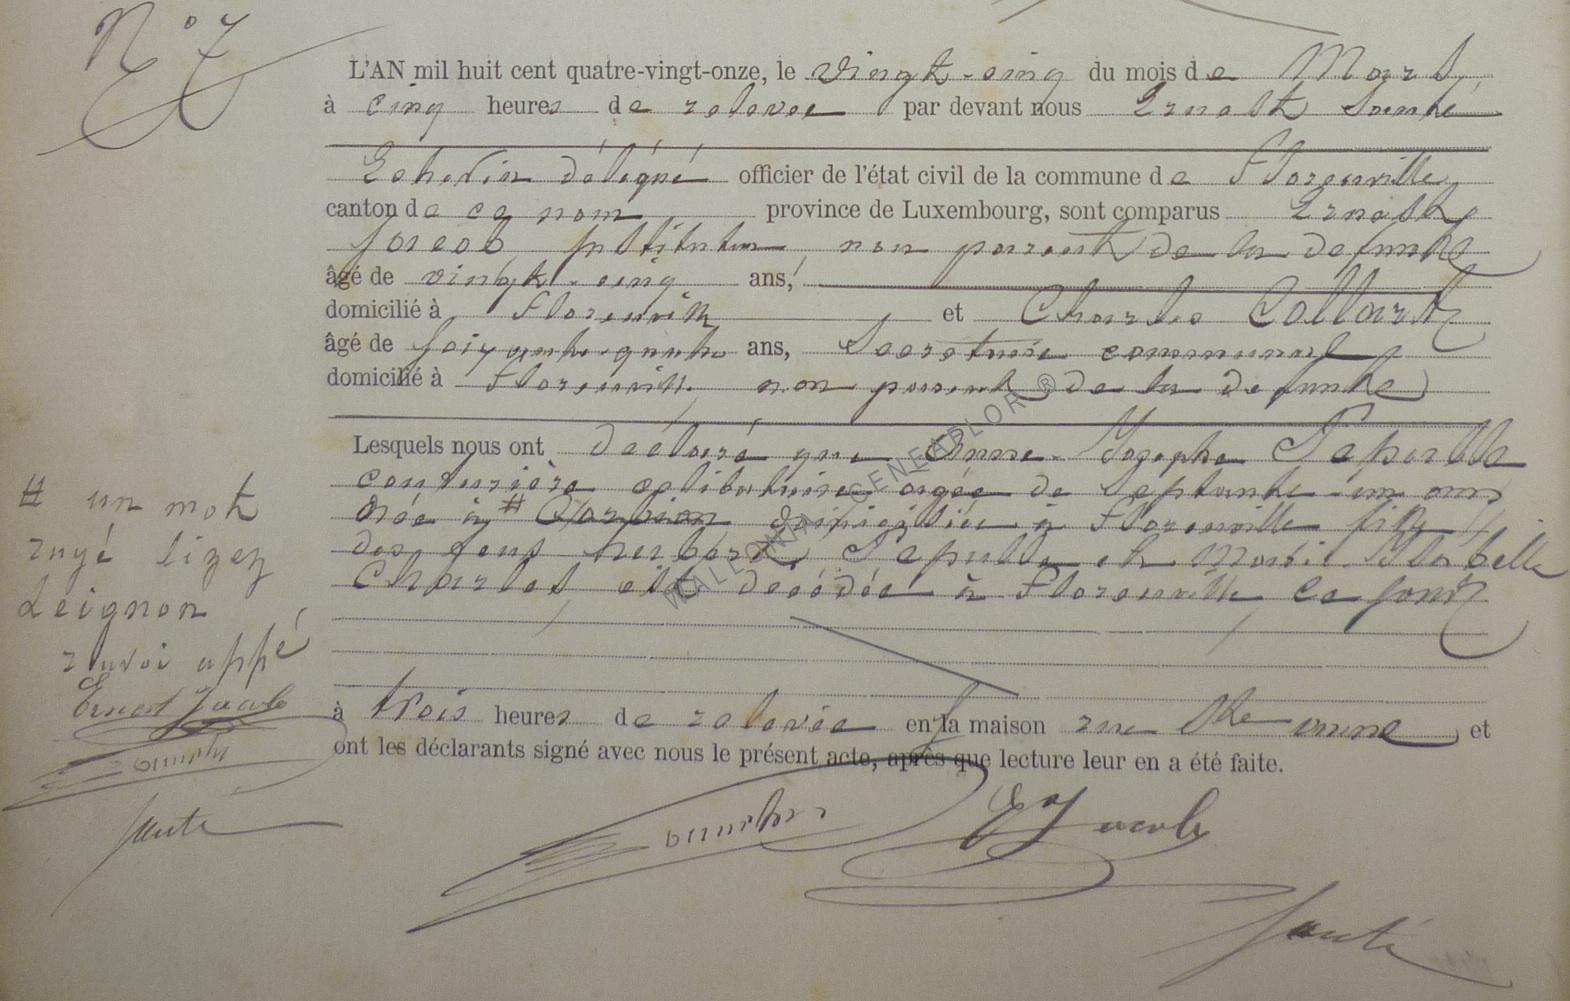 N° 7
L'AN mil huit cent quatre-vingt-onze, le vingt-cinq du mois de Mars
à cinq heures de relevée par devant nous Ernest Santé
Echevin délégué officier de l'état civil de la commune de Florenville
canton de ce nom province de Luxembourg, sont comparus Ernest
Jacob Instituteur non parent de la defunte
âgé de vingt-cinq ans,
domicilié à Florenville et Charles Collard
âgé de soixante-quatre ans, Secrétaire communal
domicilié à Florenville non parent de la defunte
Lesquels nous ont déclaré que Anne-Josephe Sepulle
couturière célibataire agée de septante-un ans
née à # domiciliée à Florenville fille
des feus Hubert Sepulle et Marie Isabelle
Charles est decédée à Florenville ce jour
à trois heures de relevée en sa maison rue Ste anne et
ont les déclarants signé avec nous le présent acte, après que lecture leur en a été faite.
# un mot
rayé lizez
Leignon
renvoi appé
Ernest Jacob
Santé
E Jacob
Santé
WALLONIA GENEAFLOR ®